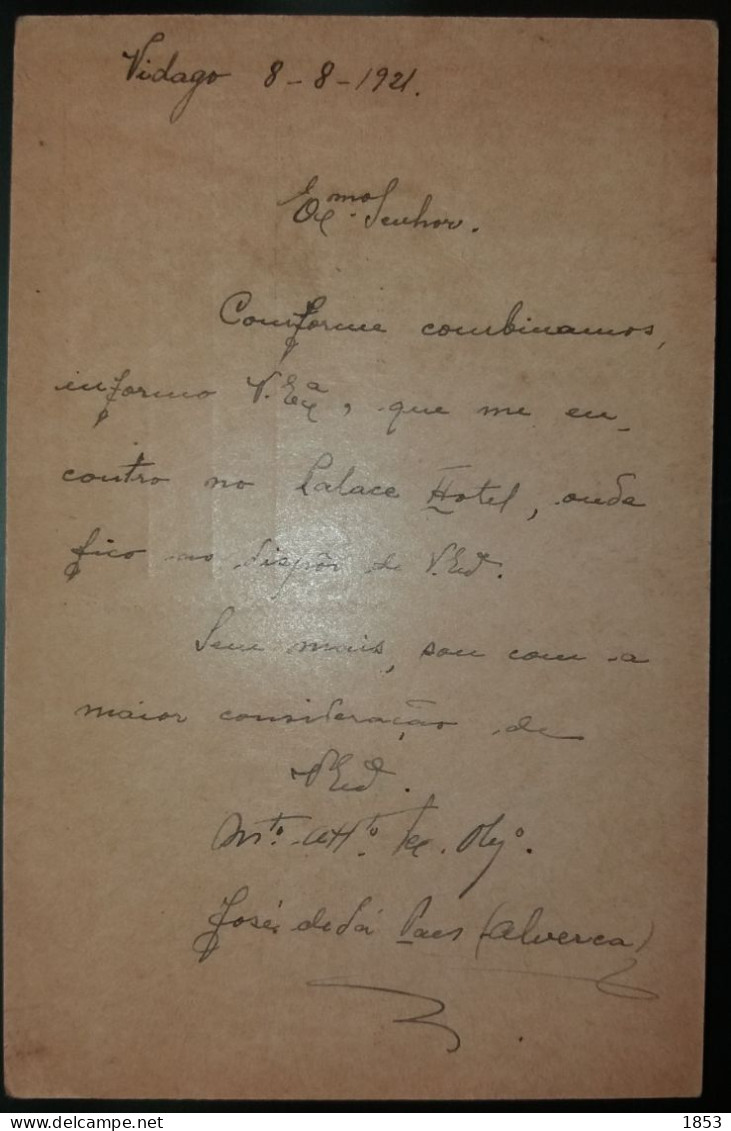 Vidago 8-8-1921.
Exmo. Senhor.
Comforme combinamos,
informo V. Exa, que me en-
contro no Palace Hotel, onde
fico ao dispôr de V. Exª.
Sem mais, sou com a
maior consideração de
V. Exª.
Mto. Atto. Ve. Obgo.
José de Sá Paes (Alverca)
1853